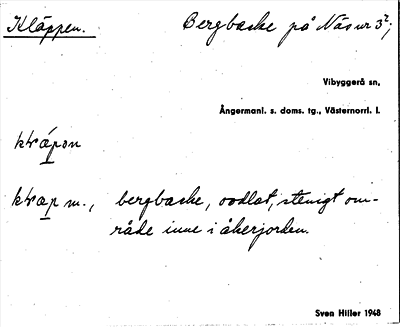 Kläppen. Bergbacke på Näsur 3²;
Vibyggerå sn,
Ångermanl. s. doms. tg., Västernorrl. l.
bergbacke, oodlat, stenigt om-
råde inne i åkerjorden.
Sven Hiller 1948